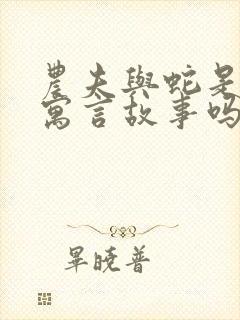 農夫與蛇是
寓言故事吗
畢曉普